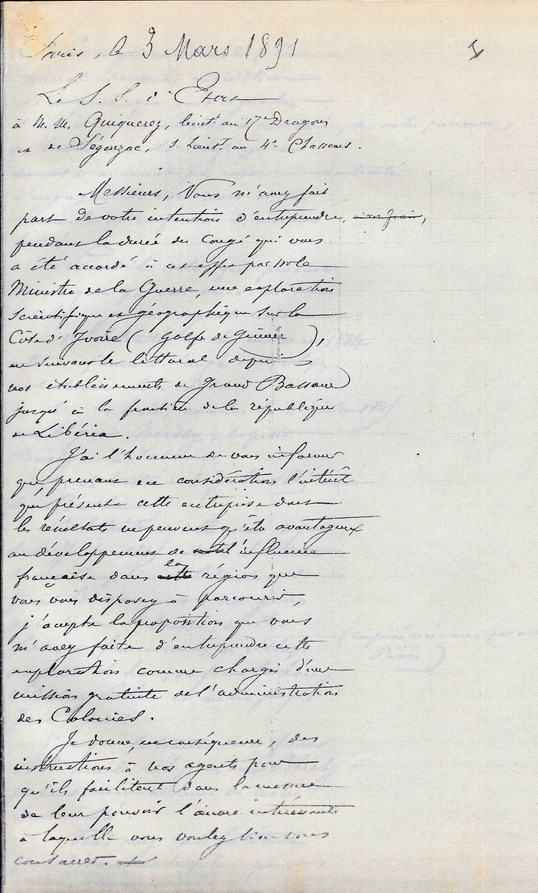 Paris, le 3 Mars 1891
1
Le S. S. d'Etat
à M.M. Quiquerez, lieut. au 17e Dragons
et de Ségonzac, s. lieut. au 4e Chasseurs.
Messieurs, Vous m'avez fait
part de votre intention d'entreprendre,
pendant la durée du Congé qui vous
a été accordé à cet effet par M. le
Ministre de la Guerre, une exploration
scientifique et géographique sur la
Côte d'Ivoire (Golfe de Guinée),
en suivant le littoral depuis
nos établissements de Grand Bassam
jusqu'à la frontière de la république
de Libéria.
J'ai l'honneur de vous informer
que, prenant en considération l'intérêt
que présente cette entreprise dont
les résultats ne peuvent qu'être avantageux
au développement de l'influence
française dans la région que
vous vous disposez à parcourir,
j'accepte la proposition que vous
m'avez faite d'entreprendre cette
exploration comme chargés d'une
mission gratuite de l'administration
des Colonies.
Je donne, en conséquence, des
instructions à nos agents pour
qu'ils facilitent dans la mesure
de leur pouvoir l'œuvre intéressante
à laquelle vous voulez bien vous
consacrer.